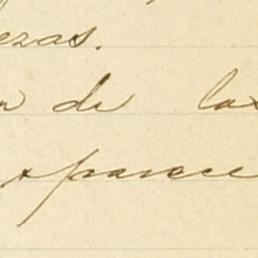 ezas.
n de las
parece